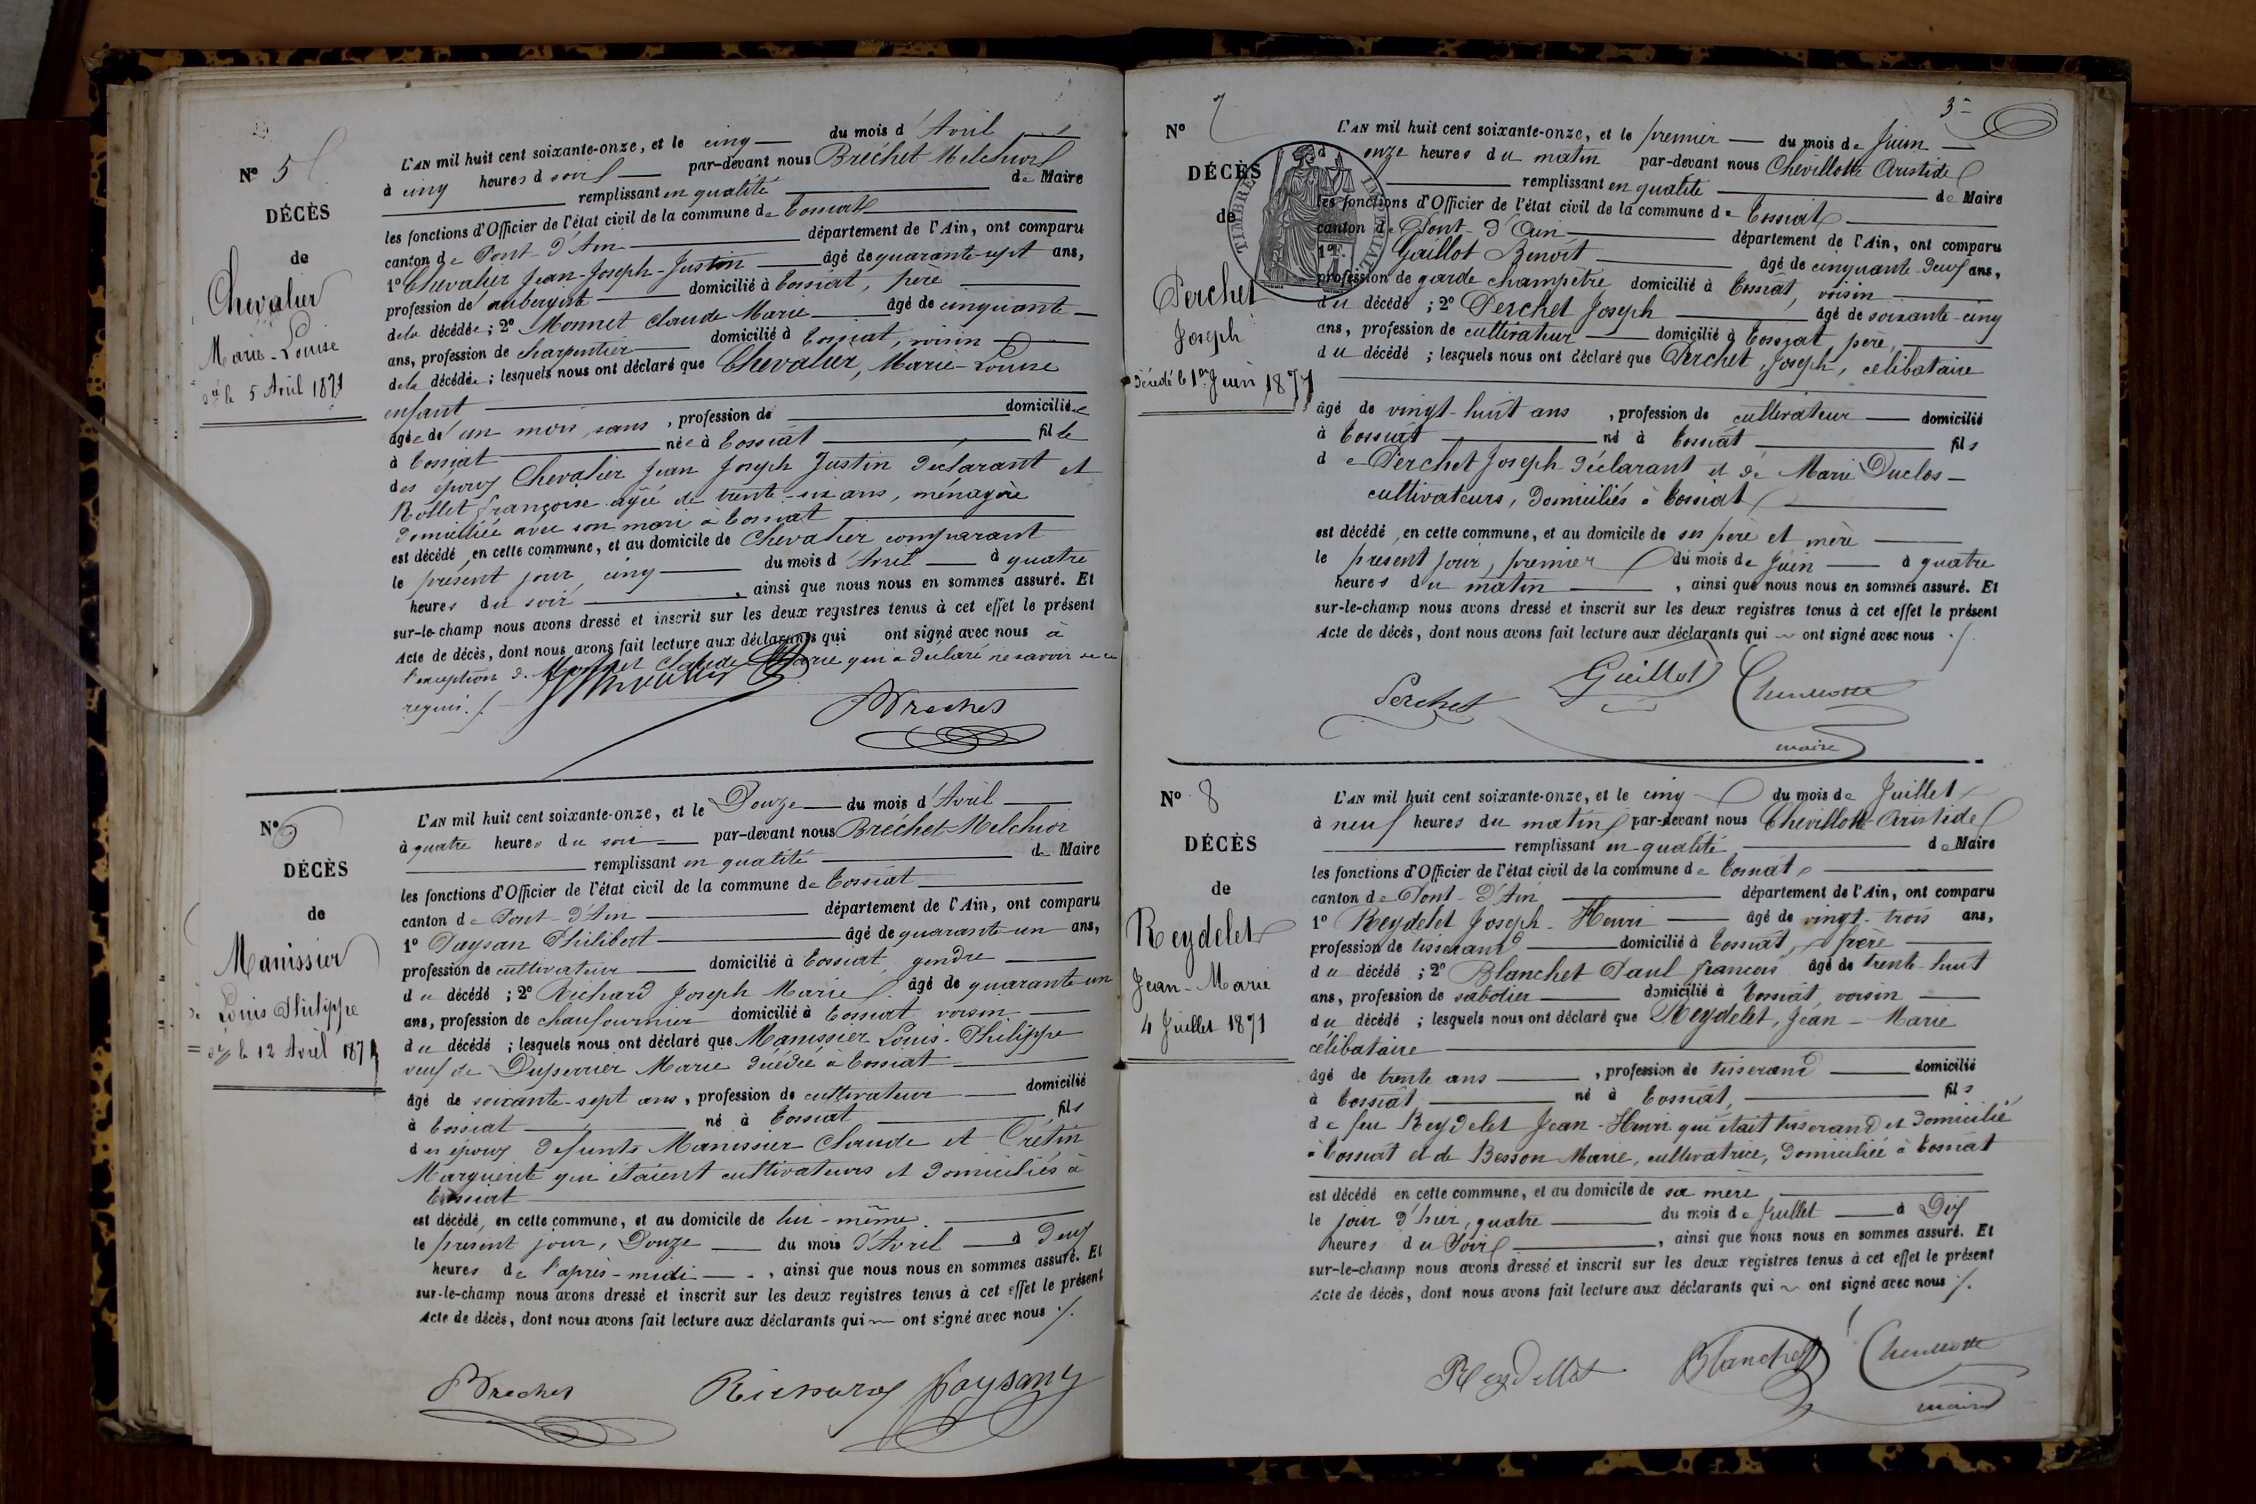 N° 5
DÉCÈS
de
Chevalier
Marie-Louise
le 5 Avril 1871
L'AN mil huit cent soixante-onze, et le cinq du mois d'Avril
à cinq heures d soir par-devant nous Bréchet Melchior
remplissant en qualité de Maire
les fonctions d'Officier de l'état civil de la commune de Tossiat
canton de Pont-d'Ain département de l'Ain, ont comparu
1° Chevalier Jean-Joseph-Justin âgé de quarante-sept ans,
profession de aubergiste domicilié à Tossiat, père
de la décédée ; 2° Monnet Claude Marie âgé de cinquante
ans, profession de charpentier domicilié à Tossiat, voisin
de la décédée ; lesquels nous ont déclaré que Chevalier, Marie-Louise
enfant
âgée de un mois, sans , profession de domiciliée
à Tossiat née à Tossiat fille
des époux Chevalier Jean Joseph Justin déclarant et
Rollet françoise âgée de trente-six ans, ménagère
domiciliée avec son mari à Tossiat
est décédé, en cette commune, et au domicile de Chevalier comparant
le présent jour, cinq du mois d'Avril à quatre
heures du soir , ainsi que nous nous en sommes assuré. Et
sur-le-champ nous avons dressé et inscrit sur les deux registres tenus à cet effet le présent
Acte de décès, dont nous avons fait lecture aux déclarants qui ont signé avec nous à
l'exception de Monnet Claude Marie qui a déclaré ne savoir de ce
requis ./.
Chevalier
Brechet
N° 6
DÉCÈS
de
Manissier
Louis Philippe
le 12 Avril 1871
L'AN mil huit cent soixante-onze, et le Douze du mois d'Avril
à quatre heures du soir par-devant nous Bréchet-Melchior
remplissant en qualité de Maire
les fonctions d'Officier de l'état civil de la commune de Tossiat
canton de Pont-d'Ain département de l'Ain, ont comparu
1° Paysan Philibert âgé de quarante-un ans,
profession de cultivateur domicilié à Tossiat, gendre
du décédé ; 2° Richard Joseph Marie âgé de quarante-un
ans, profession de chaufournier domicilié à Tossiat voisin
du décédé ; lesquels nous ont déclaré que Manissier Louis-Philippe
veuf de Duperrier Marie décédée à Tossiat
âgé de soixante-sept ans, profession de cultivateur domicilié
à Tossiat né à Tossiat fils
des époux defunts Manissier Claude et Crétin
Marguerite qui étaient cultivateurs et domiciliés à
Tossiat
est décédé, en cette commune, et au domicile de lui-même
le présent jour, Douze du mois d'Avril à deux
heures de l'après-midi , ainsi que nous nous en sommes assuré. Et
sur-le-champ nous avons dressé et inscrit sur les deux registres tenus à cet effet le présent
Acte de décès, dont nous avons fait lecture aux déclarants qui ont signé avec nous ./.
Brechet Richard Paysan
3
N° 7
DÉCÈS
de
Perchet
Joseph
Décédé le 1er Juin 1871
TIMBRE IMPÉRIAL
L'AN mil huit cent soixante-onze, et le premier du mois de Juin
à onze heures du matin par-devant nous Chevillotte Aristide
remplissant en qualité de Maire
les fonctions d'Officier de l'état civil de la commune de Tossiat
canton de Pont-d'Ain département de l'Ain, ont comparu
1° Gaillot Benoît âgé de cinquante-deux ans,
profession de garde champêtre domicilié à Tossiat, voisin
du décédé ; 2° Perchet Joseph âgé de soixante-cinq
ans, profession de cultivateur domicilié à Tossiat, père,
du décédé ; lesquels nous ont déclaré que Perchet, Joseph, célibataire
âgé de vingt-huit ans , profession de cultivateur domicilié
à Tossiat né à Tossiat fils
de Perchet Joseph déclarant et de Marie Duclos
cultivateurs, domiciliés à Tossiat
est décédé, en cette commune, et au domicile de ses père et mère
le présent jour, premier du mois de Juin à quatre
heures du matin , ainsi que nous nous en sommes assuré. Et
sur-le-champ nous avons dressé et inscrit sur les deux registres tenus à cet effet le présent
Acte de décès, dont nous avons fait lecture aux déclarants qui ont signé avec nous ./.
Perchet Guillot Chevillotte
maire
N° 8
DÉCÈS
de
Reydelet
Jean-Marie
4 Juillet 1871
L'AN mil huit cent soixante-onze, et le cinq du mois de Juillet
à neuf heures du matin par-devant nous Chevillotte Aristide
remplissant en qualité de Maire
les fonctions d'Officier de l'état civil de la commune de Tossiat
canton de Pont-d'Ain département de l'Ain, ont comparu
1° Reydelet Joseph-Henri âgé de vingt-trois ans,
profession de tisserand domicilié à Tossiat, frère
du décédé ; 2° Blanchet Paul françois âgé de trente-huit
ans, profession de sabotier domicilié à Tossiat, voisin
du décédé ; lesquels nous ont déclaré que Reydelet, Jean-Marie
célibataire
âgé de trente ans , profession de tisserand domicilié
à Tossiat né à Tossiat, fils
de feu Reydelet Jean-Henri qui était tisserand et domicilié
à Tossiat et de Besson Marie, cultivatrice, domiciliée à Tossiat
est décédé en cette commune, et au domicile de sa mère
le jour d'hier, quatre du mois de Juillet à Dix
heures du Soir , ainsi que nous nous en sommes assuré. Et
sur-le-champ nous avons dressé et inscrit sur les deux registres tenus à cet effet le présent
Acte de décès, dont nous avons fait lecture aux déclarants qui ont signé avec nous ./.
Reydellet Blanchet Chevillotte
maire